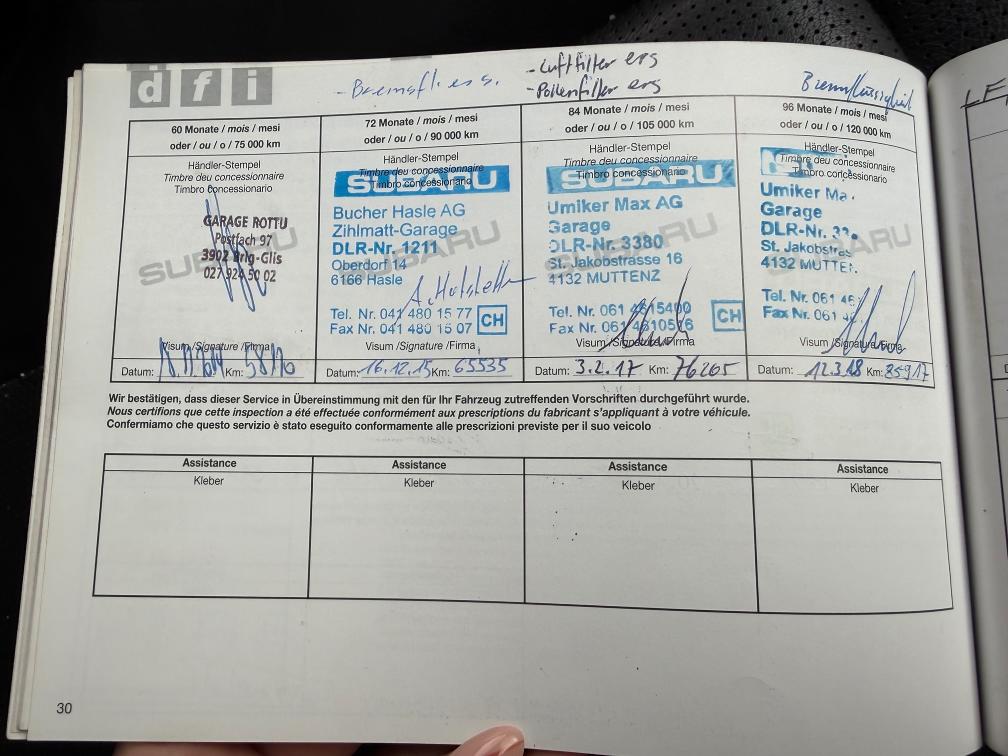 d f i
- Bremsfl. ers.
- Luftfilter ers
- Pollenfilter ers
Bremsflüssigkeit
60 Monate / mois / mesi
oder / ou / o / 75 000 km
Händler-Stempel
Timbre du concessionnaire
Timbro concessionario
GARAGE ROTTU
Postfach 97
3902 Brig-Glis
027 924 50 02
SUBARU
Visum /Signature /Firma
Datum:
Km:
72 Monate / mois / mesi
oder / ou / o / 90 000 km
Händler-Stempel
Timbre deu concessionnaire
Timbro concessionario
SUBARU
Bucher Hasle AG
Zihlmatt-Garage
DLR-Nr. 1211
Oberdorf 14
6166 Hasle
SUBARU
Tel. Nr. 041 480 15 77
Fax Nr. 041 480 15 07
CH
Visum /Signature /Firma
Datum: 16.12.15 Km: 65535
84 Monate / mois / mesi
oder / ou / o / 105 000 km
Händler-Stempel
Timbre deu concessionnaire
Timbro concessionario
SUBARU
Umiker Max AG
Garage
DLR-Nr. 3380
St. Jakobstrasse 16
4132 MUTTENZ
SUBARU
Tel. Nr. 061 4615400
Fax Nr. 061 4610516
CH
Visum /Signature /Firma
Datum: 3.2.17 Km: 76265
96 Monate / mois / mesi
oder / ou / o / 120 000 km
Händler-Stempel
Timbre deu concessionnaire
Timbro concessionario
Umiker Ma
Garage
DLR-Nr.
St. Jakobstras
4132 MUTTE
SUBARU
Tel. Nr. 061 46
Fax Nr. 061
Visum /Signature /Firma
Datum: 12.3.18 Km: 85917
Wir bestätigen, dass dieser Service in Übereinstimmung mit den für Ihr Fahrzeug zutreffenden Vorschriften durchgeführt wurde.
Nous certifions que cette inspection a été effectuée conformément aux prescriptions du fabricant s'appliquant à votre véhicule.
Confermiamo che questo servizio è stato eseguito conformamente alle prescrizioni previste per il suo veicolo
Assistance
Kleber
Assistance
Kleber
Assistance
Kleber
Assistance
Kleber
30